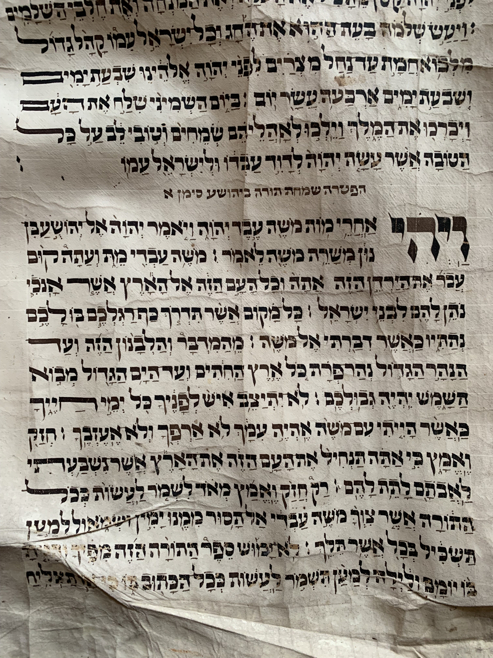 ויעש שלמה בעת ההיא את החג וכל ישראל עמו קהל גדול
מלבוא חמת עד נחל מצרים לפני יהוה אלהינו שבעת ימים
ושבעת ימים ארבעה עשר יום : ביום השמיני שלח את העם
ויברכו את המלך וילכו לאהליהם שמחים וטובי לב על כל
הטובה אשר עשה יהוה לדוד עבדו ולישראל עמו :
הפטרה שמחת תורה ביהושע סימן א
ויהי אחרי מות משה עבד יהוה ויאמר יהוה אל יהושע בן
נון משרת משה לאמר : משה עבדי מת ועתה קום
עבר את הירדן הזה אתה וכל העם הזה אל הארץ אשר אנכי
נתן להם לבני ישראל : כל מקום אשר תדרך כף רגלכם בו לכם
נתתיו כאשר דברתי אל משה : מהמדבר והלבנון הזה ועד
הנהר הגדול נהר פרת כל ארץ החתים ועד הים הגדול מבוא
השמש יהיה גבולכם : לא יתיצב איש לפניך כל ימי חייך
כאשר הייתי עם משה אהיה עמך לא ארפך ולא אעזבך : חזק
ואמץ כי אתה תנחיל את העם הזה את הארץ אשר נשבעתי
לאבותם לתת להם : רק חזק ואמץ מאד לשמר לעשות ככל
התורה אשר צוך משה עבדי אל תסור ממנו ימין ושמאול למען
תשכיל בכל אשר תלך : לא ימוש ספר התורה הזה מפיך
בו יומם ולילה למען תשמר לעשות ככל הכתוב בו כי אז תצליח